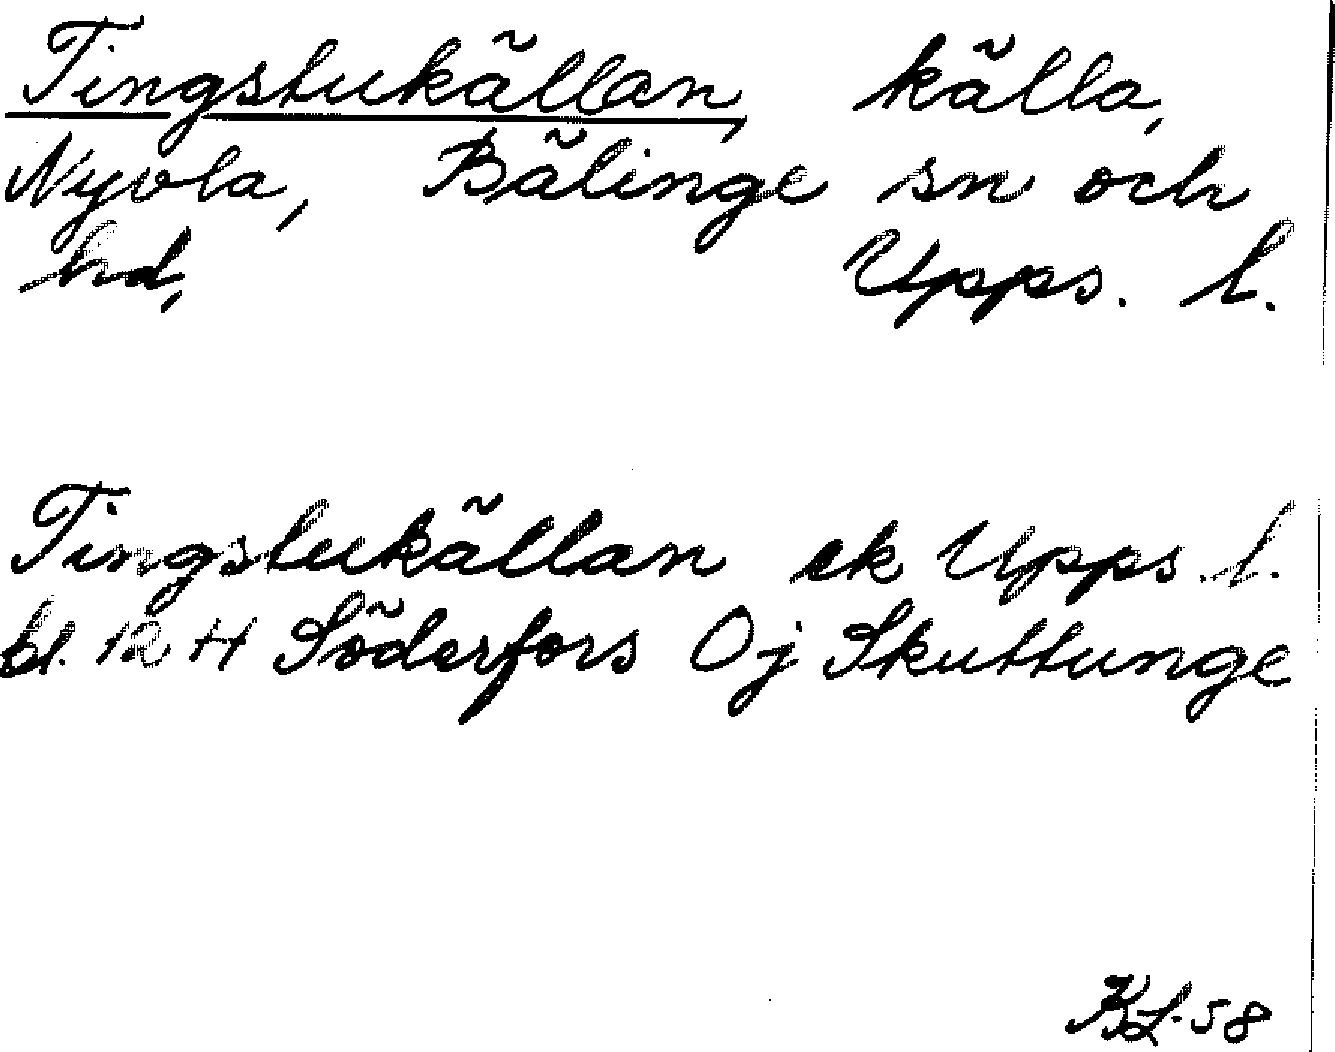 Tingstukällan, källa,
Nyvla, Bälinge sn och
hd, Upps. l.
Tingstukällan ek Upps. l.
bl. 12 H Söderfors 0j Skuttunge
KL. 58